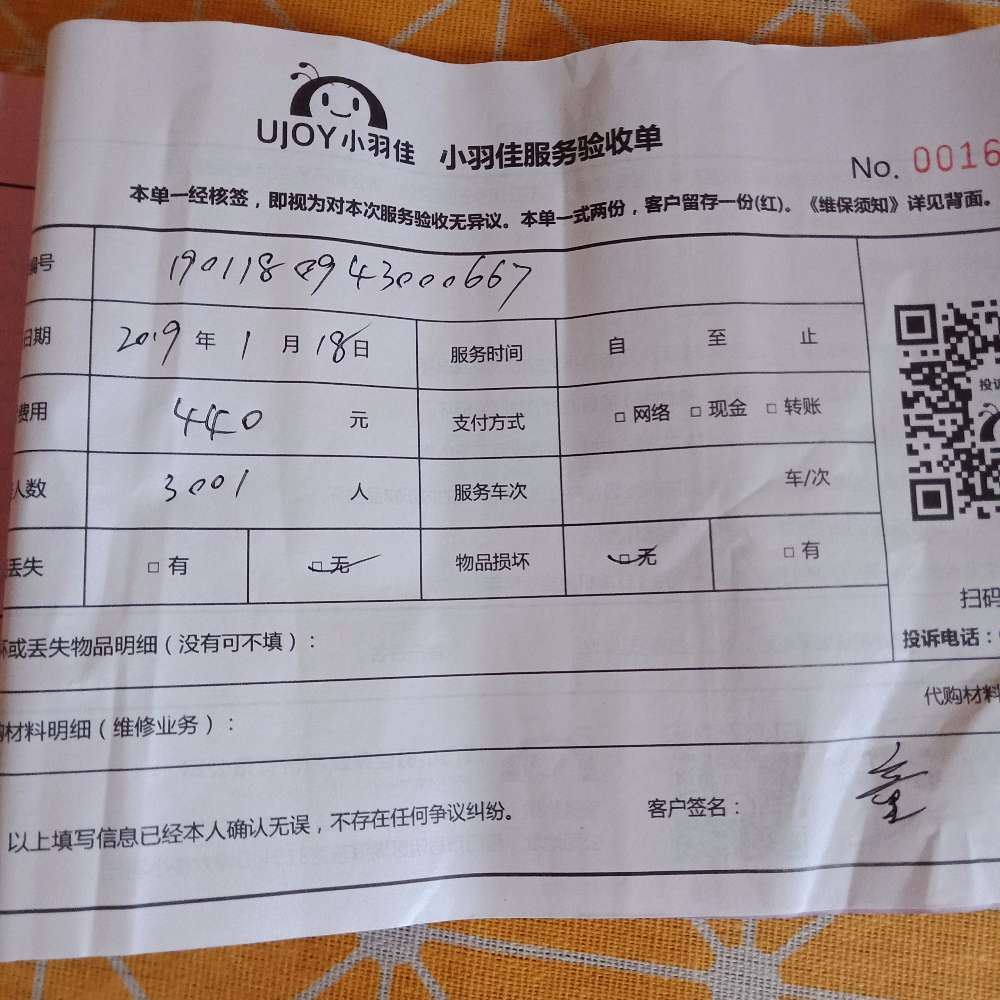 UJOY小羽佳 小羽佳服务验收单
No. 0016
本单一经核签，即视为对本次服务验收无异议。本单一式两份，客户留存一份(红)。《维保须知》详见背面。
编号 1901180943000667
日期 2019 年 1 月 18 日 服务时间 自 至 止
费用 440 元 支付方式 □ 网络 □ 现金 □ 转账
人数 3001 人 服务车次 车/次
丢失 □ 有 □ 无 物品损坏 □ 无 □ 有
或丢失物品明细（没有可不填）：
材料明细（维修业务）：
以上填写信息已经本人确认无误，不存在任何争议纠纷。 客户签名：
扫码
投诉电话：
代购材料